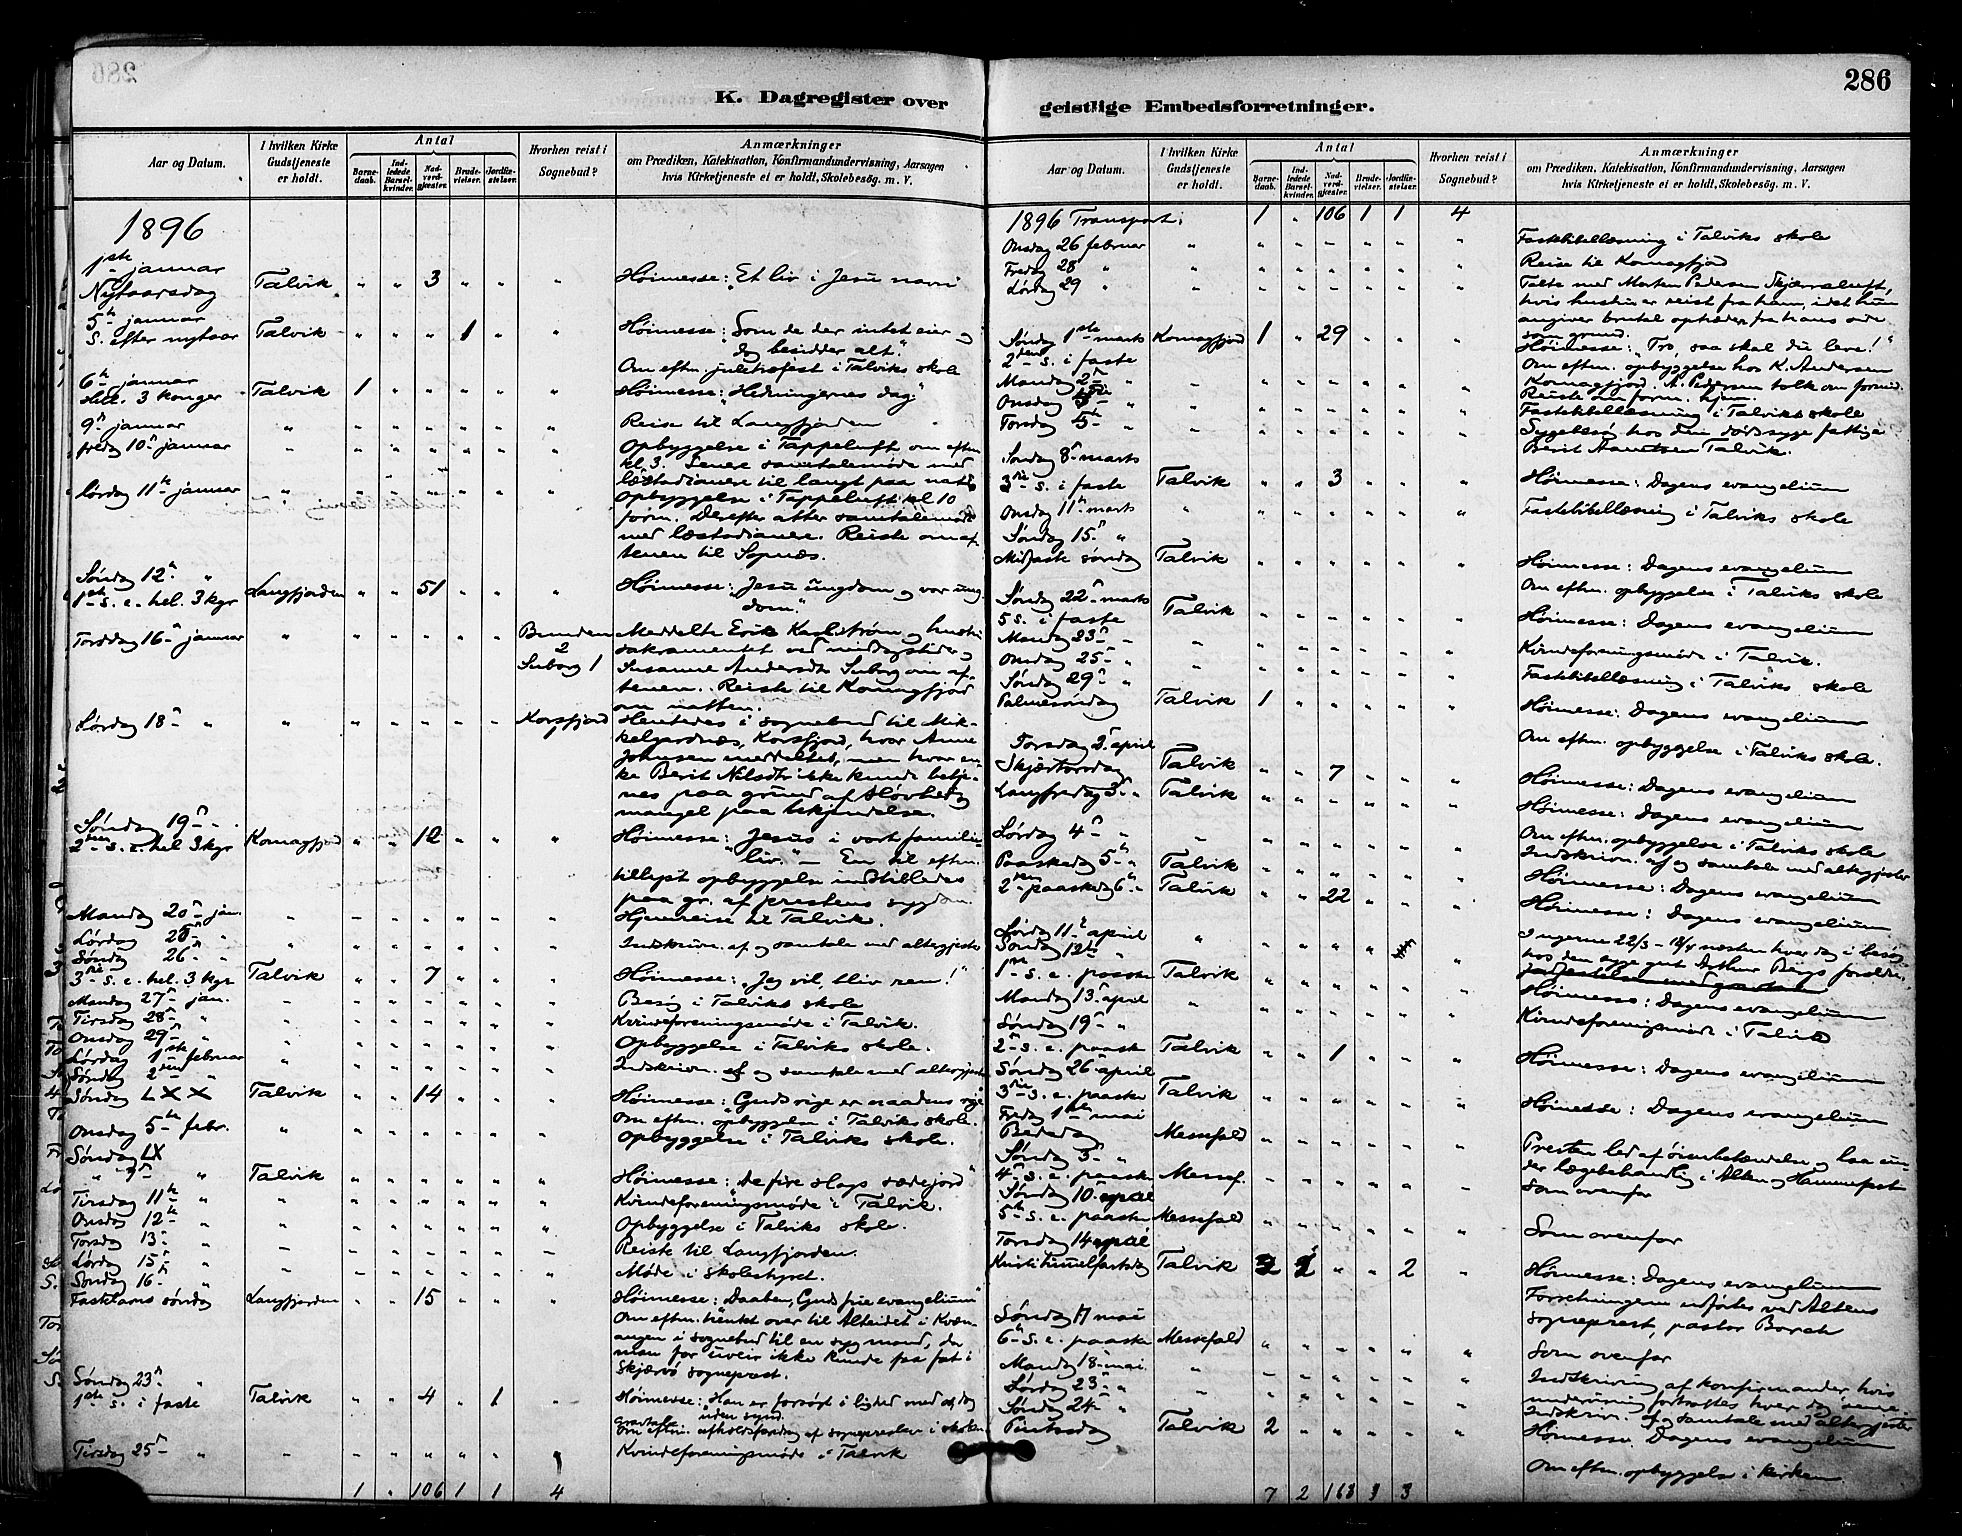 286
K. Dagregister over geistlige Embedsforretninger.
Aar og Datum.
I hvilken Kirke Gudstjeneste er holdt.
Antal
Barne-daab.
Ind-ledede Barsel-kvinder.
Nad-verd-gjester.
Brude-vielser.
Jordfæ-stelser.
Hvorhen reist i Sognebud?
Anmærkninger
om Prædiken, Katekisation, Konfirmandundervisning, Aarsagen
hvis Kirketjeneste ei er holdt, Skolebesøg. m. V.
1896
1ste januar
Nytaarsdag Talvik " " 3 " " " Høimesse: "Et liv i Jesu navn
5te januar
S. efter nytaar Talvik " " " 1 " " Høimesse: "Som de der intet eier og
dog besidder alt."
Om eftm. juletræfest i Talviks skole
6te januar
Hel. 3 konger Talvik 1 " " " " " Høimesse: "Hedningernes dag"
9de januar " " " " " " " Reise til Langfjorden
fredag 10de januar " " " " " " " Opbyggelse i Tappeluft om eftm
kl. 3. Senere samtalemøde med
læstadianere til langt paa nat
lørdag 11te januar " " " " " " Opbyggelse i Tappeluft kl 10
form. Derefter atter samtalemøde
med læstadianere. Reiste om af-
tenen til Sopnæs.
Søndag 12te "
1ste s. e. hel. 3 kgr Langfjorden " " 51 " " " Høimesse: "Jesu ungdom og vor ung
dom."
Torsdag 16de januar " " " " " " Meddelte Erik Karlstrøm og hustru
2 sakramentet ved middagstider og
1 Susanne Andersdt om af-
tenen. Reiste til Komagfjord
om natten.
Lørdag 18de " " " " " " " Korsfjord Hentedes i sognebud til Mik-
kelgerdnæs, Korsfjord, hvor Anne
Johnsen meddeltes, men hvor en-
ke Berit Nilsdtr ikke kunde betje-
nes paa grund af sløvhed og
mangel paa bekjendelse.
Søndag 19de "
2den s. e. hel 3 kgr Komagfjord " " 12 " " " Høimesse: "Jesus i vort familie-
liv." – En til eftm.
tillyst opbyggelse indstilledes
paa gr. af prestens sygdom
Mandag 20de jan. Hjemreise til Talvik.
Lørdag 25de " Indskrivn. af og samtale med altergjester
Søndag 26de "
3die s. e. hel. 3 kgr Talvik " " 7 " " " Høimesse: "Jeg vil, bliv ren!"
Mandag 27de jan. Besøg i Talviks skole
Tirsdag 28de " Kvindeforeningsmøde i Talvik.
Onsdag 29de " Opbyggelse i Talviks skole.
Lørdag 1ste februar Indskrivn. af og samtale med altergjester
Søndag 2den "
Søndag LXX Talvik " " 14 " " " Høimesse: Guds rige er naadens rige
Om eftm. opbyggelse i Talviks skole.
Onsdag 5te febr. Opbyggelse i Talviks skole.
Søndag LX
" 9de " Talvik " " " " " " Høimesse: "De fire slags sædejord"
Tirsdag 11te " Kvindeforeningsmøde i Talvik.
Onsdag 12te " Opbyggelse i Talviks skole.
Torsdag 13de " Reiste til Langfjorden.
Lørdag 15de " Møde i skolestyret.
Søndag 16de "
Fastelavns søndag Langfjorden " " 15 " " " Høimesse: "Daaben, Guds frie evangelium"
Om eftm. hentet over til Alteidet i Kvæn-
angen i sognebud til en syg mand, da
man for uveir ikke kunde faa fat i
Skjærvø sogneprest.
Søndag 23de "
1ste s. i faste Talvik " " 4 " 1 " Høimesse: Han er forsøgt i lighed med os dog
uden synd.
Om eftm. afholdsforedrag af sognepresten i skolen
Tirsdag 25de " Kvindeforeningsmøde i Talvik
1 " 106 1 1 4
286
Aar og Datum.
I hvilken Kirke Gudstjeneste er holdt.
Antal
Barne-daab.
Ind-ledede Barsel-kvinder.
Nad-verd-gjester.
Brude-vielser.
Jordfæ-stelser.
Hvorhen reist i Sognebud?
Anmærkninger
om Prædiken, Katekisation, Konfirmandundervisning, Aarsagen
hvis Kirketjeneste ei er holdt, Skolebesøg. m. V.
1896 Transport: 1 " 106 1 1 4
Onsdag 26 februar Fastebibellæsning i Talviks skole
Fredag 28 " Reise til Komagfjord
Lørdag 29 " Talte med Morten Pedersen Skjærvaluft,
hvis hustru er reist fra ham, idet hun
angiver brutal optræden fra hans side
som grund.
Søndag 1ste marts Komagfjord 1 " 29 " " " Høimesse: "Tro, saa skal du leve!"
2den s. i faste Om eftm. opbyggelse hos K. Andersen
Mandag 2den " Komagfjord. A. Pedersen tolk om formid.
Reiste om form. hjem.
Onsdag " Fastebibellæsning i Talviks skole
Torsdag 5te " Sygebesøg hos den dødssyge fattige
Berit Aamtsen Talvik.
Søndag 8de marts
3die s. i faste Talvik " " 3 " " " Høimesse: Dagens evangelium
Onsdag 11te marts Fastebibellæsning i Talviks skole
Søndag 15de "
Midfaste søndag Talvik Høimesse: Dagens evangelium
Om eftm. opbyggelse i Talviks skole
Søndag 22de marts
5 s. i faste Talvik Høimesse: Dagens evangelium
Mandag 23de " Kvindeforeningsmøde i Talvik.
Onsdag 25de " Fastebibellæsning i Talviks skole
Søndag 29de "
Palmesøndag Talvik 1 " " " " " Høimesse: Dagens evangelium
Om eftm. opbyggelse i Talviks skole.
Torsdag 2 april
Skjærtorsdag Talvik " " 7 " " " Høimesse: Dagens evangelium
Langfredag 3de " Talvik Høimesse: Dagens evangelium
Om eftm. opbyggelse i Talviks skole
Lørdag 4de " Indskrivn. af og samtale med altergjester
Paaskedag 5te " Talvik Høimesse: Dagens evangelium
2den paaskedag 6te " Talvik " " 22 " " " Høimesse: Dagens evangelium
Lørdag 11te april I ugerne 22/3 – næsten hver dag i besøg
hos den syge gut Arthur Bergs forældre
Søndag 12te "
1ste s. e. paaske Talvik Høimesse: Dagens evangelium
Mandag 13de april Kvindeforeningsmøde i Talvik
Søndag 19de "
2den s. e. paaske Talvik " " 1 " " " Høimesse: Dagens evangelium
Søndag 26de april
3die s. e. paaske Talvik Høimesse: Dagens evangelium
Fredag 1ste mai
Bededag Messefald Presten led af øienbetændelse og laa un-
der lægebehandling i Alten og Hammerfest
Søndag 3de "
4de s. e. paaske Messef. Som ovenfor
Søndag 10de
5te s. e. paaske Messefald Som ovenfor
Torsdag 14de
Kristi himmelfartsdag Talvik 2 Høimesse: Dagens evangelium
Forretningerne udførtes ved Altens
sogneprest, pastor Borch
Søndag 17 mai
6te s. e. paaske Messefald Som ovenfor
Mandag 18de mai Indskrivning af konfirmander, hvis
undervisning fortsattes hver dag senere.
Lørdag 23de " Indskrivn. af og samtale med altergjester
Søndag 24de "
Pintsedag Talvik 2 Høimesse. Dagens evangelium
Om eftm. opbyggelse i kirken
7 2 168 3